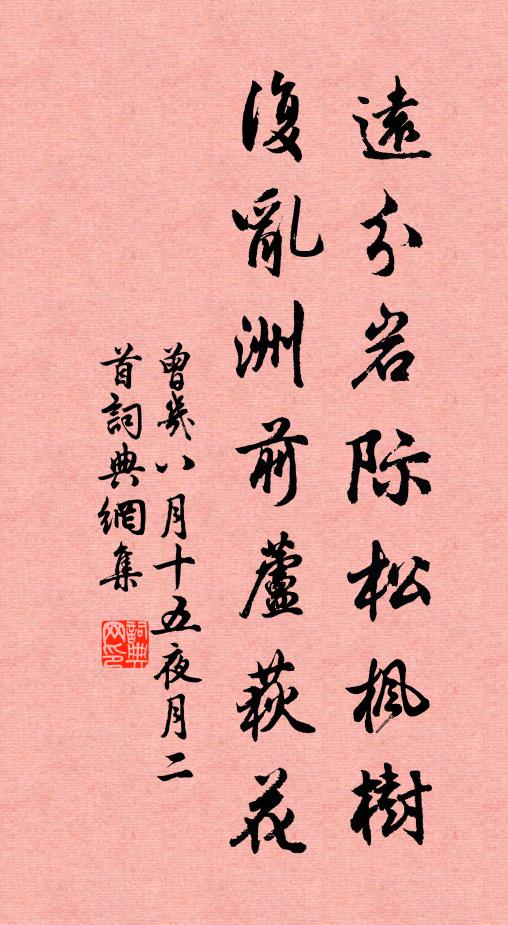 遠分岩际松枫樹
復亂洲前蘆荻花
曾幾八月十五夜月二
首詞典網集
詞典网印